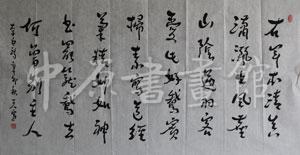 右军本清真
潇洒出风尘
山阴遇羽客
爱此好鹅宾
扫素写道经
笔精妙如神
书罢笼鹅去
何曾别主人
中原书画馆